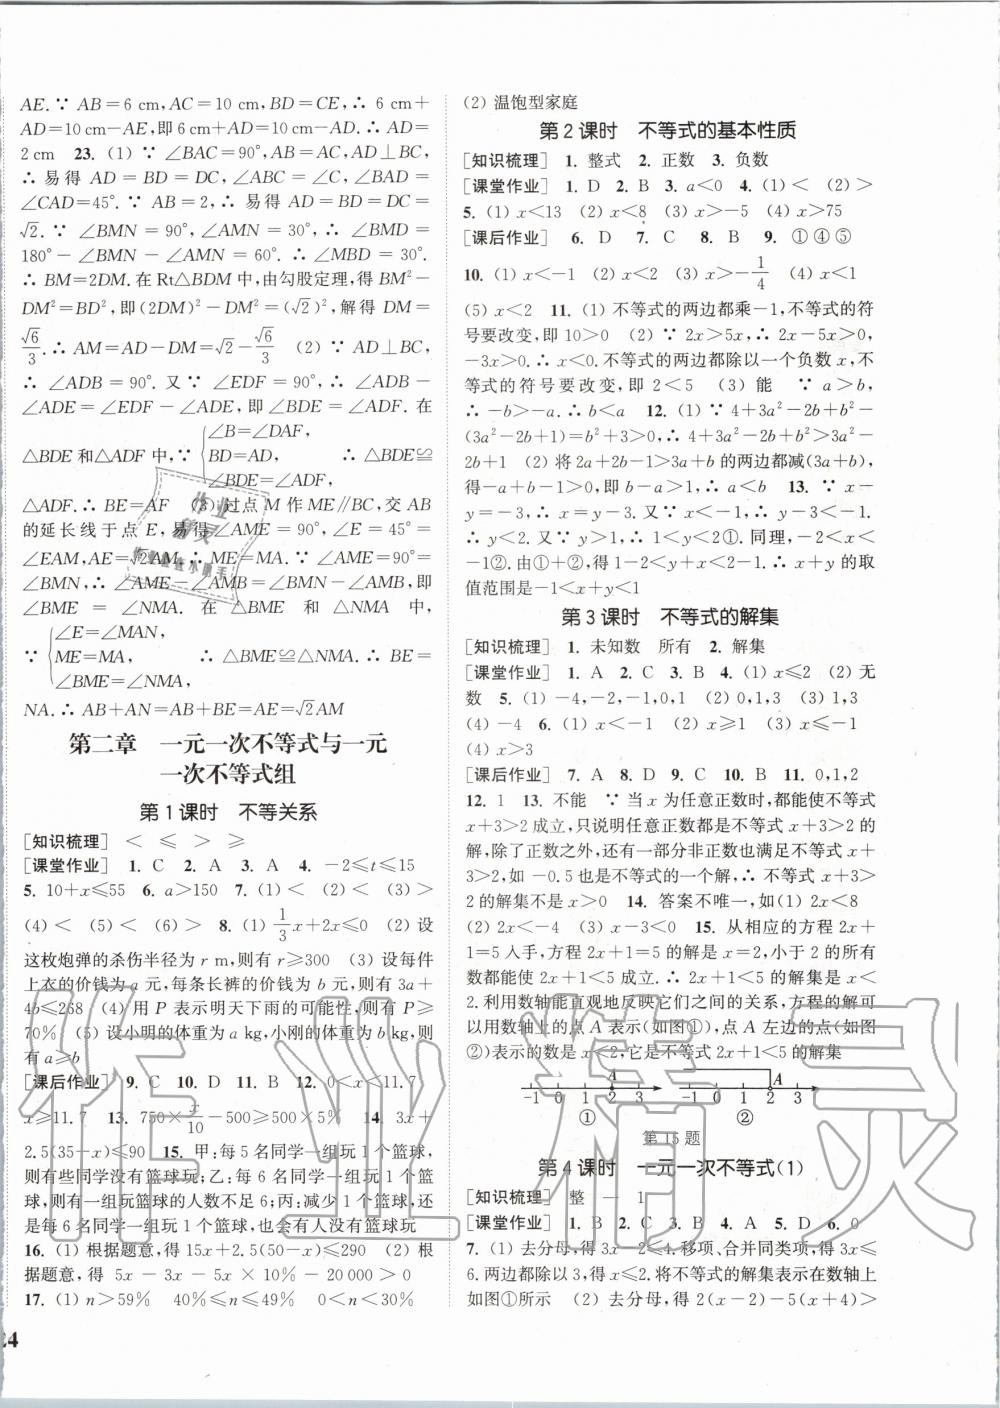 AE.∵ AB=6 cm,AC=10 cm,BD=CE,∴ 6 cm+
AD=10 cm-AE,即 6 cm+AD=10 cm-AD.∴ AD=
2 cm 23. (1) ∵ ∠BAC=90°,AB=AC,AD⊥BC,
∴ 易得 AD=BD=DC,∠ABC=∠C=45°,∠BAD=
∠CAD=45°.∵ AB=2,∴ 易得 AD=BD=DC=
√2.∵ ∠BMN=90°,∠AMN=30°,∴ ∠BMD=
180°-∠BMN-∠AMN=60°.∴ ∠MBD=30°.
∴ BM=2DM.在 Rt△BDM 中,由勾股定理,得 BM²-
DM²=BD²,即(2DM)²-DM²=(√2)²,解得 DM=
√6/3.∴ AM=AD-DM=√2-√6/3 (2) ∵ AD⊥BC,
∴ ∠ADB=90°.又∵ ∠EDF=90°,∴ ∠ADB-
∠ADE=∠EDF-∠ADE,即∠BDE=∠ADF.在
△BDE 和△ADF 中,∵ {∠B=∠DAF, BD=AD, ∠BDE=∠ADF, ∴ △BDE≌
△ADF.∴ BE=AF (3) 过点 M 作 ME∥BC,交 AB
的延长线于点 E,易得∠AME=90°,∠E=45°=
∠EAM,AE=√2AM.∴ ME=MA.∵ ∠AME=90°=
∠BMN,∴ ∠AME-∠AMB=∠BMN-∠AMB,
即 ∠BME=∠NMA. 在 △BME 和 △NMA 中,
∵ {∠E=∠MAN, ME=MA, ∠BME=∠NMA, ∴ △BME≌△NMA.∴ BE=
NA.∴ AB+AN=AB+BE=AE=√2AM
第二章 一元一次不等式与一元
一次不等式组
第 1 课时 不等关系
[知识梳理] < ≤ > ≥
[课堂作业] 1. C 2. A 3. A 4. -2≤t≤15
5. 10+x≤55 6. a>150 7. (1) < (2) < (3) >
(4) < (5) < (6) > 8. (1) 1/3x+2x≤0 (2) 设
这枚炮弹的杀伤半径为 r m,则有 r≥300 (3) 设每件
上衣的价钱为 a 元,每条长裤的价钱为 b 元,则有 3a+
4b≤268 (4) 用 P 表示明天下雨的可能性,则有 P≥
70% (5) 设小明的体重为 a kg,小刚的体重为 b kg,则
有 a≥b
[课后作业] 9. C 10. D 11. B 12. 0<x≤11.7
x≥11.7 13. 750×x/10-500≥500×5% 14. 3x+
2.5(35-x)≤90 15. 甲:每 5 名同学一组玩 1 个篮球,
则有些同学没有篮球玩;乙:每 6 名同学一组玩 1 个篮
球,则有一组玩篮球的人数不足 6;丙:减少 1 个篮球,还
是每 6 名同学一组玩 1 个篮球,就有同学没有篮球玩
16. (1) 根据题意,得 15x+2.5(50-x)≤290 (2) 根
据题意,得 5x-3x-50x×10%-20 000>0
17. (1) n>59% 40%≤n≤49% 0<n<30%
(2) 温饱型家庭
第 2 课时 不等式的基本性质
[知识梳理] 1. 整式 2. 正数 3. 负数
[课堂作业] 1. D 2. B 3. a<0 4. (1) < (2) >
5. (1) x<13 (2) x<8 (3) x>-5 (4) x>75
[课后作业] 6. D 7. C 8. B 9. ①④⑤
10. (1) x<-1 (2) x<2 (3) x>-1/4 (4) x<1
(5) x<2 11. (1) 不等式的两边都乘-1,不等式的符
号要改变,即 10>0 (2) ∵ 2x>5x,∴ 2x-5x>0,
-3x>0.∴ x<0.不等式的两边都除以一个负数 x,不
等式的符号要改变,即 2<5 (3) 能 ∵ a>b,
∴ -b>-a.∴ b<a 12. (1) ∵ 4+3a²-2b+b²-
(3a²-2b+1)=b²+3>0,∴ 4+3a²-2b+b²>3a²-
2b+1 (2) 将 2a+2b-1>3a+b 的两边都减(3a+b),
得-a+b-1>0,即 b-a>1,∴ a<b 13. ∵ x-
y=-3,∴ x=y-3.又∵ x<-1,∴ y-3<-1.
∴ y<2.又∵ y>1,∴ 1<y<2①.同理,-2<x<
-1②.由①+②,得-1-2<y+x<2-1.∴ x+y 的取
值范围是-1<x+y<1
第 3 课时 不等式的解集
[知识梳理] 1. 未知数 所有 2. 解集
[课堂作业] 1. A 2. C 3. B 4. (1) x≤2 (2) 无
数 5. (1) -4,-2,-1,0,1,3 (2) 0,1,3 (3) 1,3
(4) -4 6. (1) x<-1 (2) x≥1 (3) x≤-1
(4) x>3
[课后作业] 7. A 8. D 9. B 10. B 11. 0,1,2
12. 1 13. 不能 ∵ 当 x 为任意正数时,都能使不等式
x+3>2 成立,只说明任意正数都是不等式 x+3>2 的
解,除了正数之外,还有一部分非正数也满足不等式 x+
3>2,如-0.5 也是不等式的一个解,∴ 不等式 x+3>2
的解集不是 x>0 14. 答案不唯一,如(1) 2x<8
(2) 2x<-4 (3) x-3<0 15. 从相应的方程 2x+
1=5 入手,方程 2x+1=5 的解是 x=2,小于 2 的所有
数都能使 2x+1<5 成立.∴ 2x+1<5 的解集是 x<
2.利用数轴能直观地反映它们之间的关系,方程的解可
以用数轴上的点 A 表示(如图①),点 A 左边的点(如图
②)表示的数是 x<2,它是不等式 2x+1<5 的解集
A A
-1 0 1 2 3 -1 0 1 2 3
① ②
第 15 题
第 4 课时 一元一次不等式(1)
[知识梳理] 整 一 1
[课堂作业] 1. B 2. C 3. B 4. D 5. D 6. 0
7. (1) 去分母,得 3x-2≤4.移项、合并同类项,得 3x≤
6.两边都除以 3,得 x≤2.将不等式的解集表示在数轴上
如图①所示 (2) 去分母,得 2(x-2)-5(x+4)>
24
作业精灵